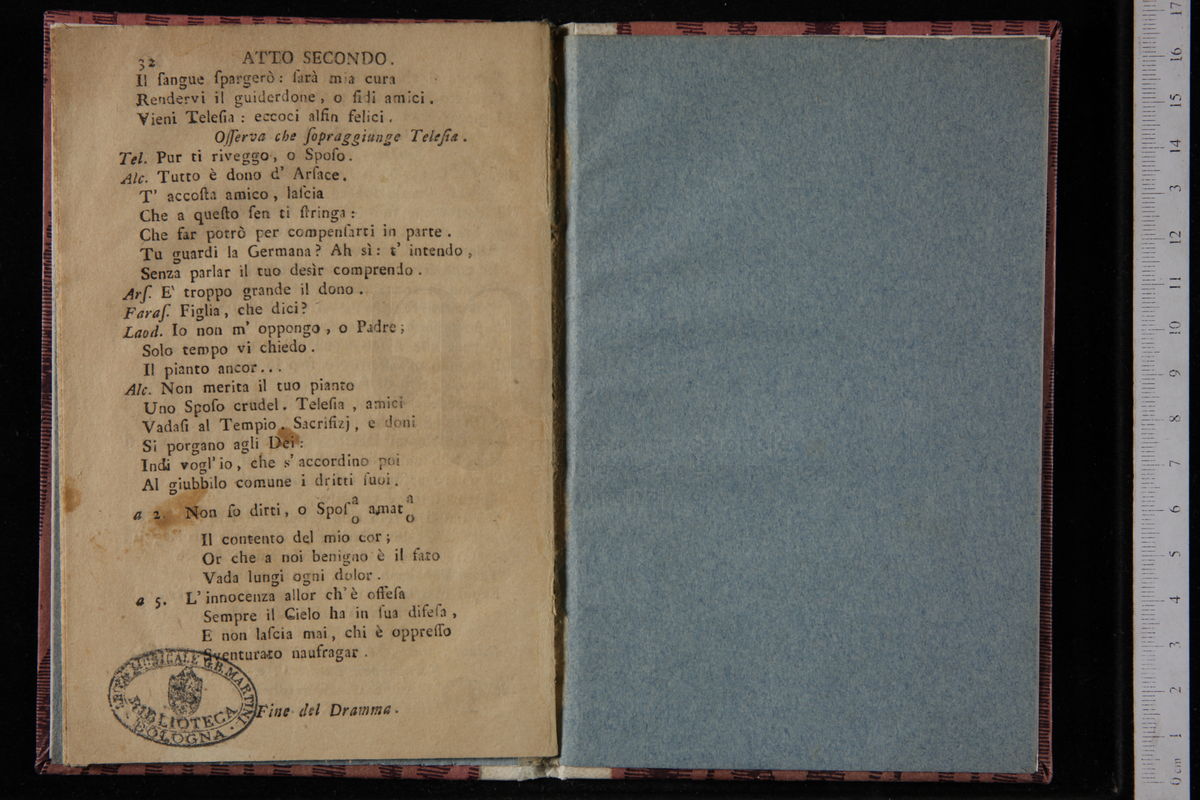 32 ATTO SECONDO.
Il ſangue ſpargerò: ſarà mia cura
Rendervi il guiderdone, o fidi amici.
Vieni Teleſia: eccoci alfin felici.
Oſſerva che ſopraggiunge Teleſia.
Tel. Pur ti riveggo, o Spoſo.
Alc. Tutto è dono d' Arſace.
T' accoſta amico, laſcia
Che a queſto ſen ti ſtringa:
Che far potrò per compenſarti in parte.
Tu guardi la Germana? Ah sì: t' intendo,
Senza parlar il tuo desìr comprendo.
Arſ. E' troppo grande il dono.
Faraſ. Figlia, che dici?
Laod. Io non m' oppongo, o Padre;
Solo tempo vi chiedo.
Il pianto ancor...
Alc. Non merita il tuo pianto
Uno Spoſo crudel. Teleſia, amici
Vadaſi al Tempio. Sacrifizj, e doni
Si porgano agli Dei:
Indi vogl' io, che s' accordino poi
Al giubbilo comune i dritti ſuoi.
a 2. Non ſo dirti, o Spoſ a o amat a o
Il contento del mio cor;
Or che a noi benigno è il fato
Vada lungi ogni dolor.
a 5. L' innocenza allor ch' è offeſa
Sempre il Cielo ha in ſua difeſa,
E non laſcia mai, chi è oppreſſo
Sventurato naufragar.
Fine del Dramma.
MUSICALE G.B. MARTINI
BIBLIOTECA
BOLOGNA
0 cm 1 2 3 4 5 6 7 8 9 10 11 12 13 14 15 16 17